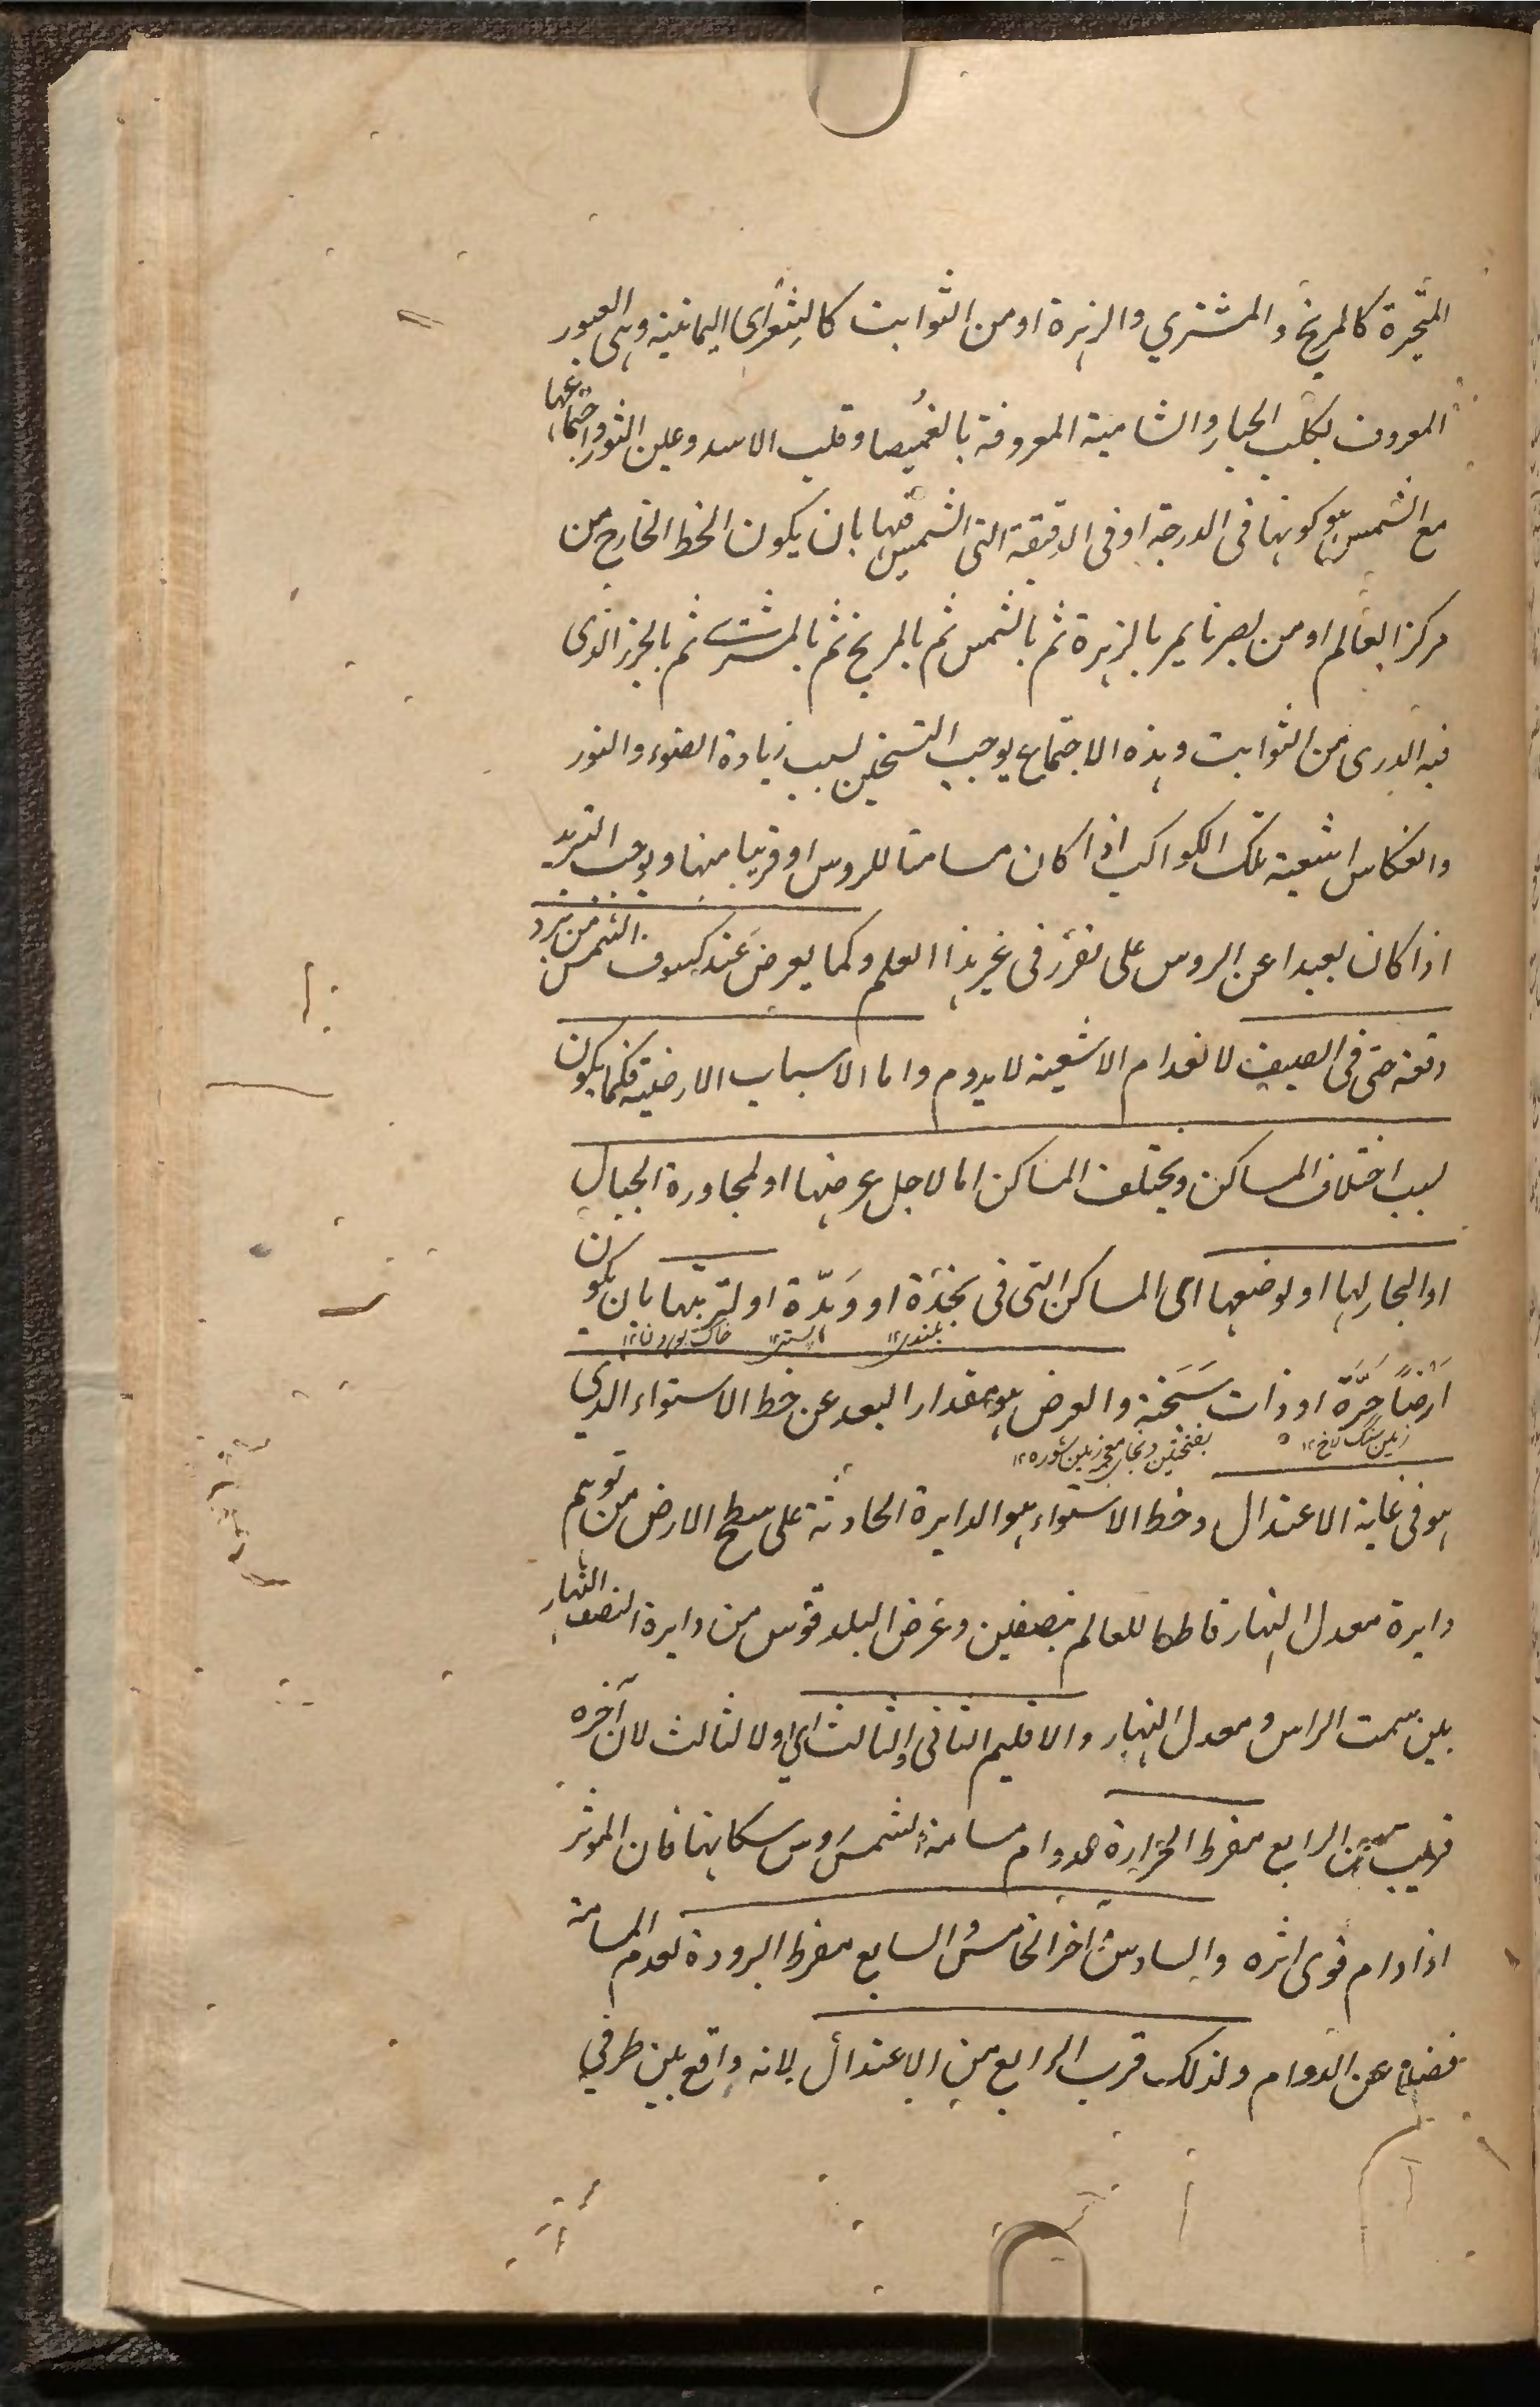 المتحيرة كالمريخ والمشتري والزهرة او من الثوابت كالشعرى اليمانية وهى العبور
المعروف بكلب الجبار والشامية المعروفة بالغميصا وقلب الاسد وعين الثور واجتماعها
مع الشمس هو كونها فى الدرجة او فى الدقيقة التى الشمس فيها بان يكون الخط الخارج من
مركز العالم او من بصرنا يمر بالزهرة ثم بالشمس ثم بالمريخ ثم بالمشترى ثم بالجزء الذى
فيه الدرى من الثوابت وهذه الاجتماع يوجب التسخين لسبب زيادة الضوء والنور
وانعكاس اشعية تلك الكواكب اذا كان مسامتا للروس او قريبا منها ويوجب التبريد
اذا كان بعيدا عن الروس على تقرر فى غير هذا العلم وكما يعرض عند كسوف الشمس من برد
دفعة حتى فى الصيف لانعدام الاشعية لا يدوم واما الاسباب الارضية فكما يكون
لسبب اختلاف المساكن ويختلف المساكن اما لاجل عرضها او لمجاورة الجبال
او البحار لها او لوضعها اى المساكن التى فى نجدة او وهدة او لتربتها بان يكون
بلندى ١٢ پستى ١٢ خاك بودن ١٢
ارضاً حَرَّة او ذات سَبَخة والعرض هو مقدار البعد عن خط الاستواء الذي
زمين سنگ لاخ ١٢ بفتحتين وخاى معجمه زمين شوره ١٢
هو فى غاية الاعتدال وخط الاستواء هو الدايرة الحادثة على سطح الارض من توهم
دايرة معدل النهار قاطعا للعالم بنصفين وعرض البلد قوس من دايرة النصف النهار
بين سمت الراس ومعدل النهار والاقليم الثانى والثالث اى اول الثالث لان آخره
قريب من الرابع مفرط الحرارة لدوام مسامتة الشمس روس سكانها فان الموثر
اذا دام قوى اثره والسادس آخر الخامس والسابع مفرط البرودة لعدم المسامتة
فضلا عن الدوام ولذلك قرب الرابع من الاعتدال لانه واقع بين طرفي